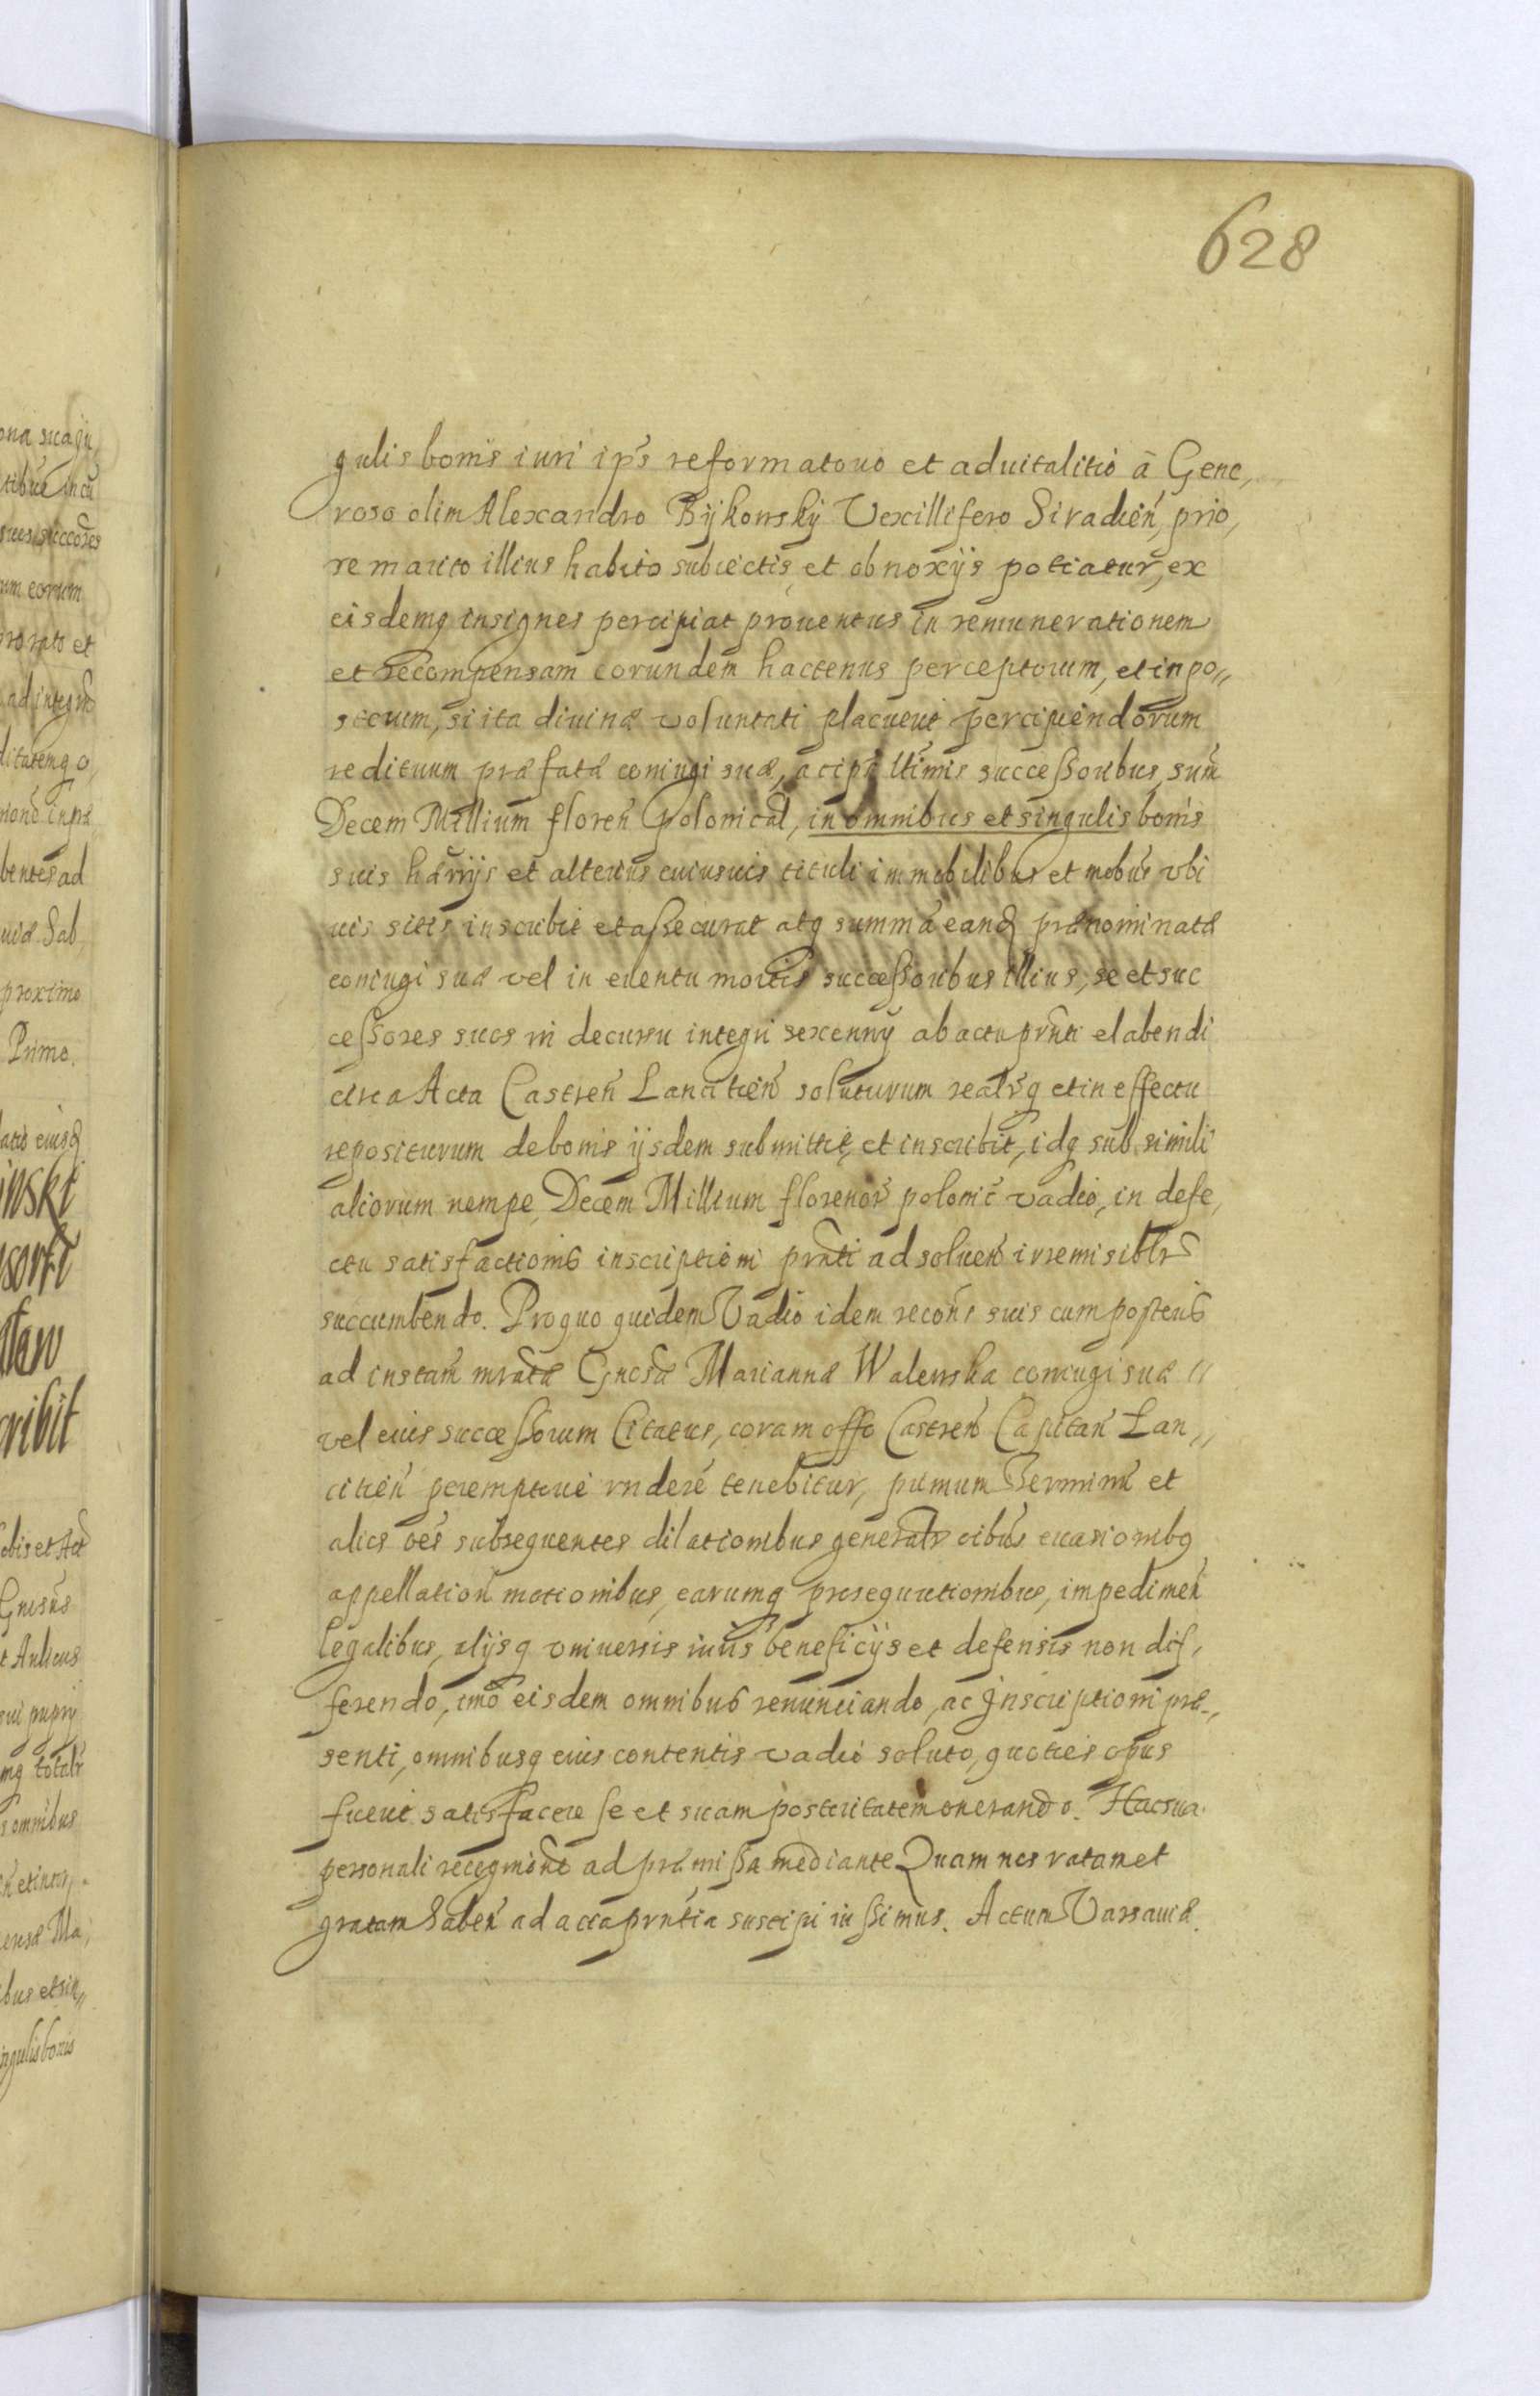 628
gulis bonis iuri ip̄s reformatorio et aduitalitio à Gene,
roso olim Alexandro Bÿkowskÿ Vexillifero Siradień, prio,
re marito illius habito subiectis et obnoxijs potiatur, ex
eisdemq insignes percipiat prouentus in remunerationem
et recompensam eorundem hactenus perceptorum, et in po„
sterum, si ita diuinæ voluntati placuerit percipiendorum
redituum præfatæ coniugi suæ, ac ip̄i ltimis successoribus, sum̄
Decem Millium floreń Polonical, in omnibus et singulis bonis
suis hærrijs et alterius cuiusuis tituli immobilibus et mobus vbi
uis sitis inscribit et assecurat atq summā eandȩ prænominatæ
coniugi suæ vel in euentu mortis successoribus illius, se et suc
cessores suos in decursu integri sexennÿ ab actu prn̄ti elabendi
circa Acta Castreń Lancitień soluturum realrq et in effectu
repositurum de bonis ijsdem submittit et inscribit, idq sub simili
aliorum nempe Decem Millium florenor polonic̄ vadio, in defe,
ctu satisfactionis inscriptioni prn̄ti ad solueń irremisiblr
succumbendo. Pro quo quidem Vadio idem recōns suis cum posteris
ad instam̄ mratæ Gn̄osæ Mariannæ Walewska coniugi suæ „
vel eius successorum Citatus, coram offo Castreń Capitań Lan„
citień peremptorie rndere tenebitur, primum Terminum et
alios oēs subsequentes dilationibus generalr oibus euasionibq
appellation̄ motionibus, earumq prosequutionibus, impedimeń
legalibus, alijsq vniuersis iuris beneficijs et defensis non dif,
ferendo, imò eisdem omnibus renunciando, ac Inscriptioni præ„
senti, omnibusq eius contentis vadio soluto, quoties opus
fuerit satisfacere se et suam posteritatem onerando. Hac sua
personali recognitne ad præmissa mediante Quam nos ratam et
gratam habeń ad acta prn̄tia suscipi iussimus. Actum Varsauiæ.